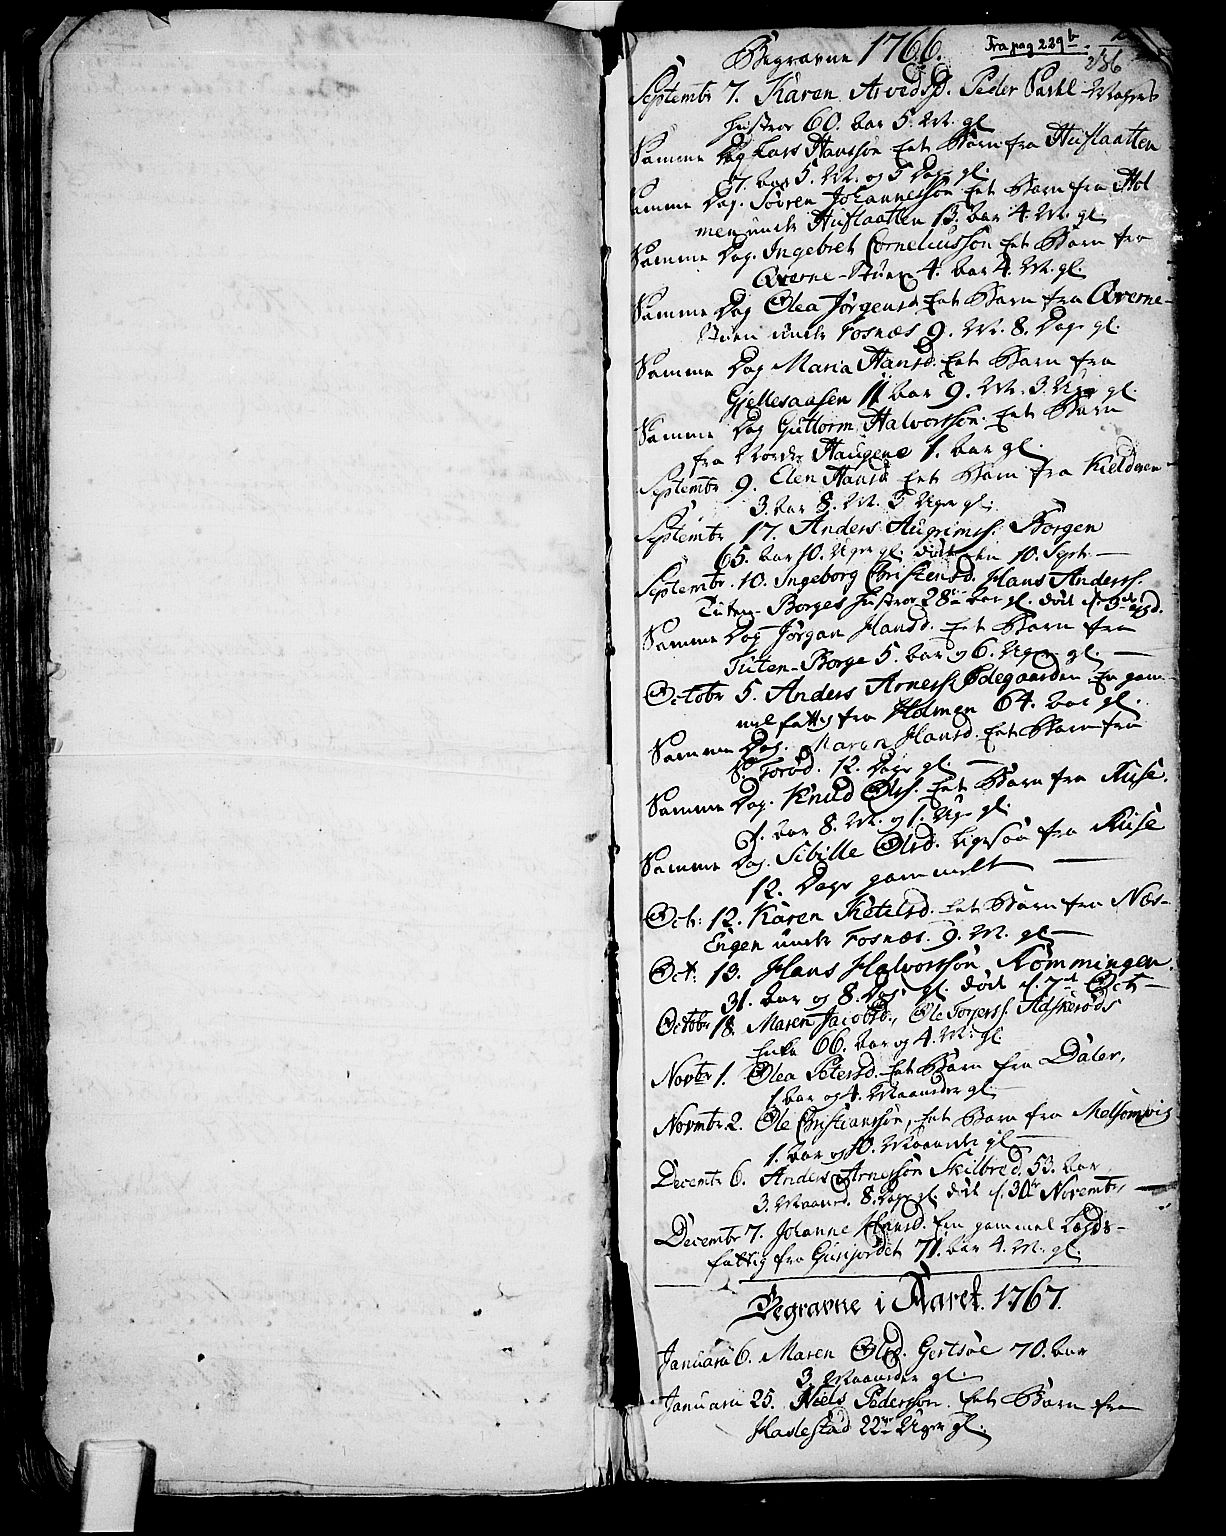 Begravne 1766. Fra pag 229b 236
Septembr 7. Karen Arvedsd. Peder
hustroe 60. Aar 5. M. gl.
Samme Dag Lars Hansson Eet Barn fra Huslaatten
7. Aar 5. M. og 5 Dage gl.
Samme Dag. Sören Johannesson Eet Barn fra Hol
men under Huslaatten 13. Aar 4. M. gl.
Samme Dag. Ingebret Corneliusson Eet Barn fra
Qverne-Stuen 4. Aar 4. M. gl.
Samme Dag Olea Jørgensd. Eet Barn fra Qverne-
Stuen under Fosnæs 9. M. 8. Dage gl.
Samme Dag Maria Hansd. Eet Barn fra
Gjellesaasen 11 Aar 9. M. 3. Uger gl.
Samme Dag Guttorm Halvorsson. Eet Barn
fra Nordre Haugene 1. Aar gl.
Septembr 9. Elen Hansd. Eet Barn fra
3. Aar 8. M. 3 Uger gl.
Septembr 17. Anders Augrimss. Borgen
65. Aar 10. Uger gl. død den 10. Sept.
Septembr. 10. Ingeborg Christensd. Hans Anderss.
Tuten-Borges hustroe 28 Aar gl. død d. 3
Samme Dag Jørgan Hansd. Eet Barn fra
Tuten-Borge 5. Aar og 6. Uger gl.
Octobr 5. Anders Arness. Ødegaarden En gam-
mel fattig fra Holmen 64. Aar gl.
Samme Dag. Maren Hansd. Eet Barn fra
S. Torød. 12. Dage gl.
Samme Dag. Knud Olss. Eet Barn fra Ruse.
1. Aar 8. M. og 1. Uge gl.
Samme Dag. Sibille Olsd. Ligesaa fra Ruse
12. Dage gammelt
Oct: 12. Karen Ketelsd. Eet Barn fra Næs-
Engen under Fosnæs. 9. M. gl.
Oct: 13. Hans Halvorsson Rømmingen.
31. Aar og 8. Dage gl. død d. 7de Oct
Octobr 18. Maren Jacobsd., Ole Torjerss. Adskerøds
Enke 66. Aar og 4. M. gl.
Novbr 1. Olea Petersd. Eet Barn fra Daler,
1. Aar og 4. Maaneder gl.
Novmbr 2. Ole Christiansson, Eet Barn fra Melsomvig
1. Aar og 10. Maaneder gl.
Decembr 6. Anders Arnesson Skilbred. 53. Aar,
3. Maaned. 8. Dage gl. død d. 30te Novembr,
Decembr 7. Johanne Hansd. En gammel Lægds-
fattig fra Gusjordet 71. Aar 4. M. gl.
Begravne i Aaret. 1767.
Januarii 6. Maren Olsd. Gertsøe 70. Aar
3. Maaneder gl.
Januarii 25. Niels Pedersson. Eet Barn fra
Haslestad 22 Uger gl.